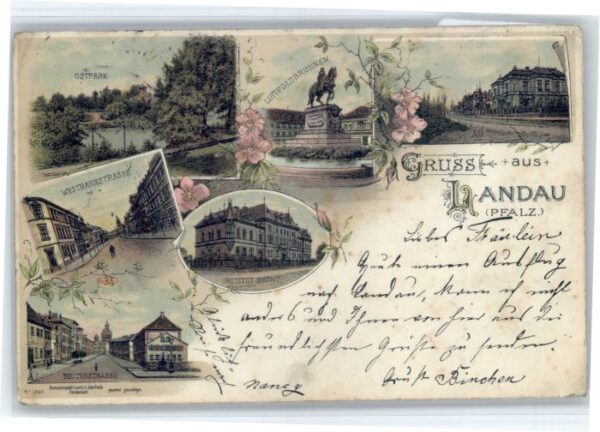 OSTPARK
LUITPOLDBRUNNEN
AU
WESTBAHNSTRASSE
GRUSS aus
LANDAU
(PFALZ.)
INSTITUT RECHT
REITERSTRASSE
Liebes Fräulein
Heute einen Ausflug
nach Landau, kann ich nicht
anders und Ihnen von hier aus die
freundlichsten Grüße zu senden.
Gruß Binchen
Nancy